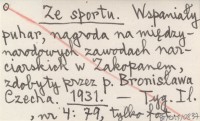 Ze sportu. Wspaniały
puhar, nagroda na między-
narodowych zawodach nar-
ciarskich w Zakopanem,
zdobyty przez p. Bronisława
Czecha. 1931. — Tyg. Il.
, nr 4: 79, tylko fot.